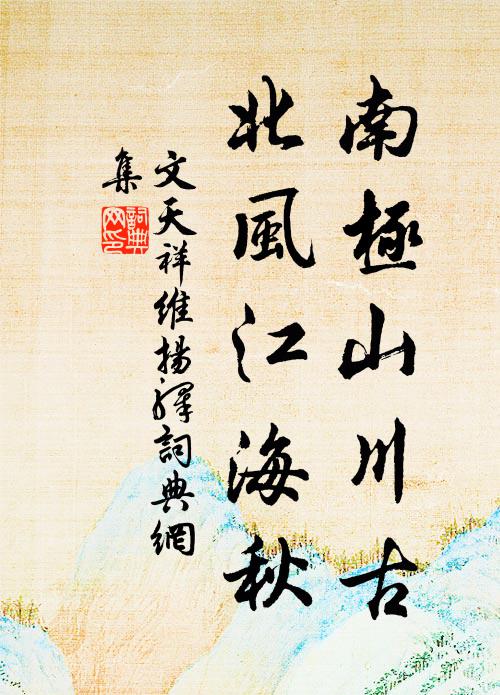 南極山川古
北風江海秋
文天祥維揚驛詞典網
集
詞典
网印